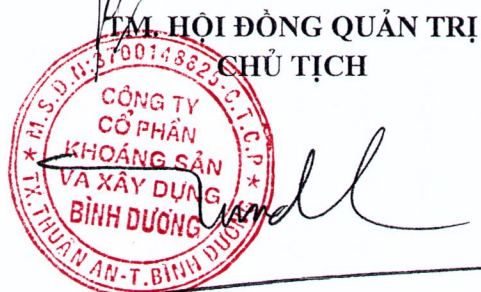 TM. HỘI ĐỒNG QUẢN TRỊ
CHỦ TỊCH
M.S.D.N:3700148825-C.T.C.P
CÔNG TY
CỔ PHẦN
KHOÁNG SẢN
VÀ XÂY DỰNG
BÌNH DƯƠNG
TX. THUẬN AN-T.BÌNH DƯƠNG